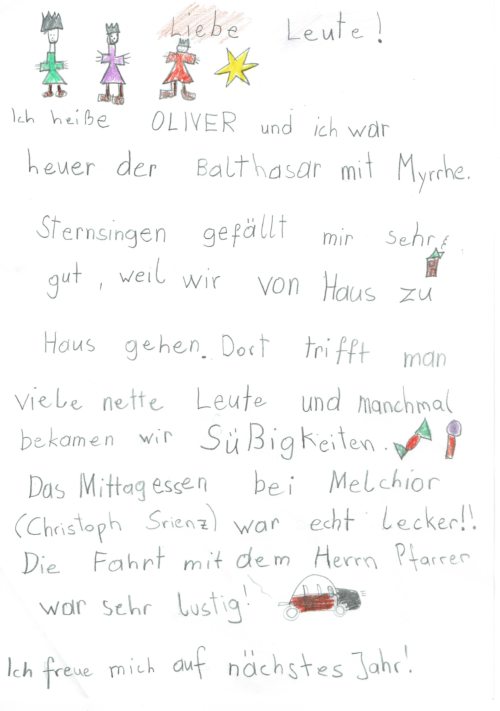 Liebe Leute!
Ich heiße OLIVER und ich war
heuer der Balthasar mit Myrrhe.
Sternsingen gefällt mir sehr
gut, weil wir von Haus zu
Haus gehen. Dort trifft man
viele nette Leute und manchmal
bekamen wir Süßigkeiten.
Das Mittagessen bei Melchior
(Christoph Srienz) war echt lecker!!
Die Fahrt mit dem Herrn Pfarrer
war sehr lustig!
Ich freue mich auf nächstes Jahr!